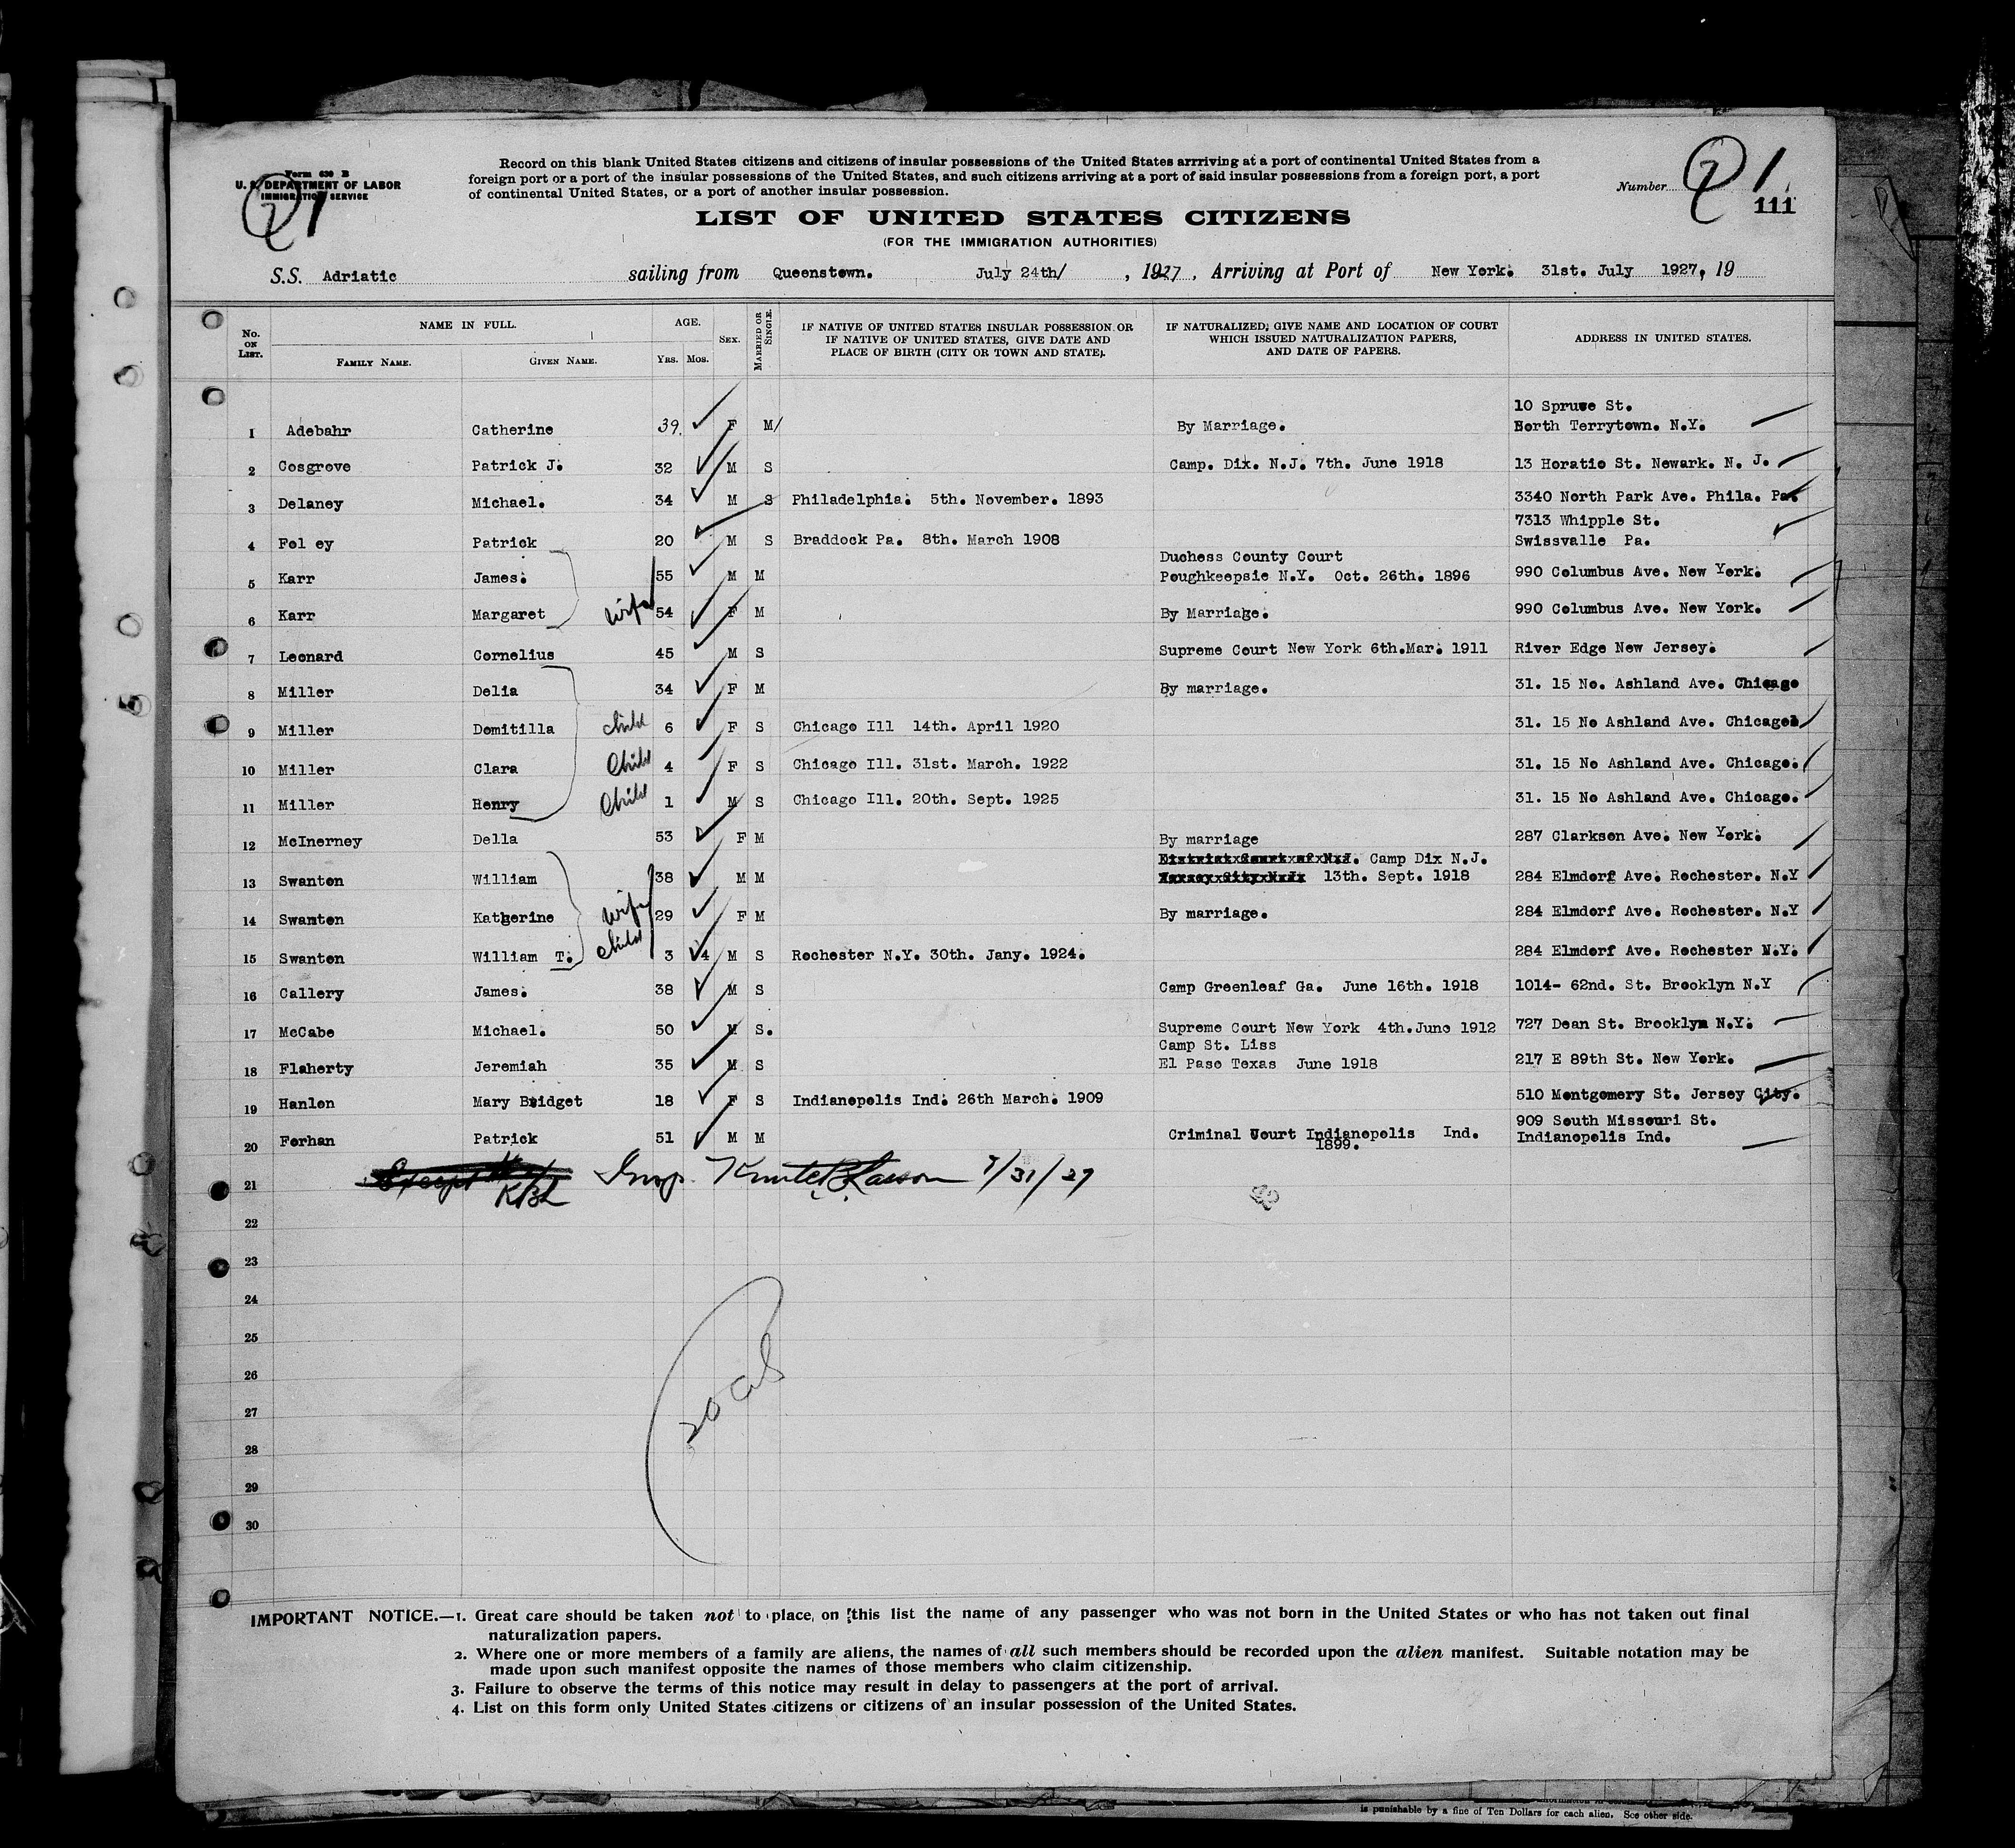 Form 630 B
U. S. DEPARTMENT OF LABOR
IMMIGRATION SERVICE
Record on this blank United States citizens and citizens of insular possessions of the United States arrriving at a port of continental United States from a
foreign port or a port of the insular possessions of the United States, and such citizens arriving at a port of said insular possessions from a foreign port, a port
of continental United States, or a port of another insular possession.
Number 1
111
LIST OF UNITED STATES CITIZENS
(FOR THE IMMIGRATION AUTHORITIES)
S.S. Adriatic sailing from Queenstown. July 24th/ , 1927, Arriving at Port of New York. 31st. July 1927, 19
No. ON LIST.
NAME IN FULL.
FAMILY NAME. GIVEN NAME.
AGE.
Yrs. Mos.
SEX.
MARRIED OR SINGLE.
IF NATIVE OF UNITED STATES INSULAR POSSESSION OR
IF NATIVE OF UNITED STATES, GIVE DATE AND
PLACE OF BIRTH (CITY OR TOWN AND STATE).
IF NATURALIZED, GIVE NAME AND LOCATION OF COURT
WHICH ISSUED NATURALIZATION PAPERS,
AND DATE OF PAPERS.
ADDRESS IN UNITED STATES.
10 Spruce St.
1 Adebahr Catherine 39. F M/ By Marriage. North Terrytown. N.Y.
2 Cosgrove Patrick J. 32 M S Camp. Dix. N.J. 7th. June 1918 13 Horatio St. Newark. N. J.
3 Delaney Michael. 34 M S Philadelphia. 5th. November. 1893 3340 North Park Ave. Phila. Pa.
7313 Whipple St.
4 Fol ey Patrick 20 M S Braddock Pa. 8th. March 1908 Swissvalle Pa.
Duchess County Court
5 Karr James. 55 M M Poughkeepsie N.Y. Oct. 26th. 1896 990 Columbus Ave. New York.
6 Karr Margaret wife 54 F M By Marriage. 990 Columbus Ave. New York.
7 Leonard Cornelius 45 M S Supreme Court New York 6th.Mar. 1911 River Edge New Jersey.
8 Miller Delia 34 F M By marriage. 31. 15 No. Ashland Ave. Chicago
9 Miller Domitilla child 6 F S Chicago Ill 14th. April 1920 31. 15 No Ashland Ave. Chicago.
10 Miller Clara Child 4 F S Chicago Ill. 31st. March. 1922 31. 15 No Ashland Ave. Chicago.
11 Miller Henry Child 1 M S Chicago Ill. 20th. Sept. 1925 31. 15 No Ashland Ave. Chicago.
12 McInerney Della 53 F M By marriage 287 Clarkson Ave. New York.
Camp Dix N.J.
13 Swanton William 38 M M 13th. Sept. 1918 284 Elmdorf Ave. Rochester. N.Y
14 Swanton Katherine wife 29 F M By marriage. 284 Elmdorf Ave. Rochester. N.Y
15 Swanton William T. child 3 4 M S Rochester N.Y. 30th. Jany. 1924. 284 Elmdorf Ave. Rochester N.Y.
16 Callery James. 38 M S Camp Greenleaf Ga. June 16th. 1918 1014- 62nd. St. Brooklyn N.Y
17 McCabe Michael. 50 M S. Supreme Court New York 4th.June 1912 727 Dean St. Brooklyn N.Y.
Camp St. Liss
18 Flaherty Jeremiah 35 M S El Paso Texas June 1918 217 E 89th St. New York.
19 Hanlon Mary Bridget 18 F S Indianopolis Ind. 26th March. 1909 510 Montgomery St. Jersey City.
909 South Missouri St.
20 Forhan Patrick 51 M M Criminal Court Indianopolis Ind. Indianopolis Ind.
1899.
21 KBL Insp. Knute B Larson 7/31/27
22
23
24
25
26
27
28
29
30
IMPORTANT NOTICE.—1. Great care should be taken not to place on this list the name of any passenger who was not born in the United States or who has not taken out final
naturalization papers.
2. Where one or more members of a family are aliens, the names of all such members should be recorded upon the alien manifest. Suitable notation may be
made upon such manifest opposite the names of those members who claim citizenship.
3. Failure to observe the terms of this notice may result in delay to passengers at the port of arrival.
4. List on this form only United States citizens or citizens of an insular possession of the United States.
is punishable by a fine of Ten Dollars for each alien. See other side.